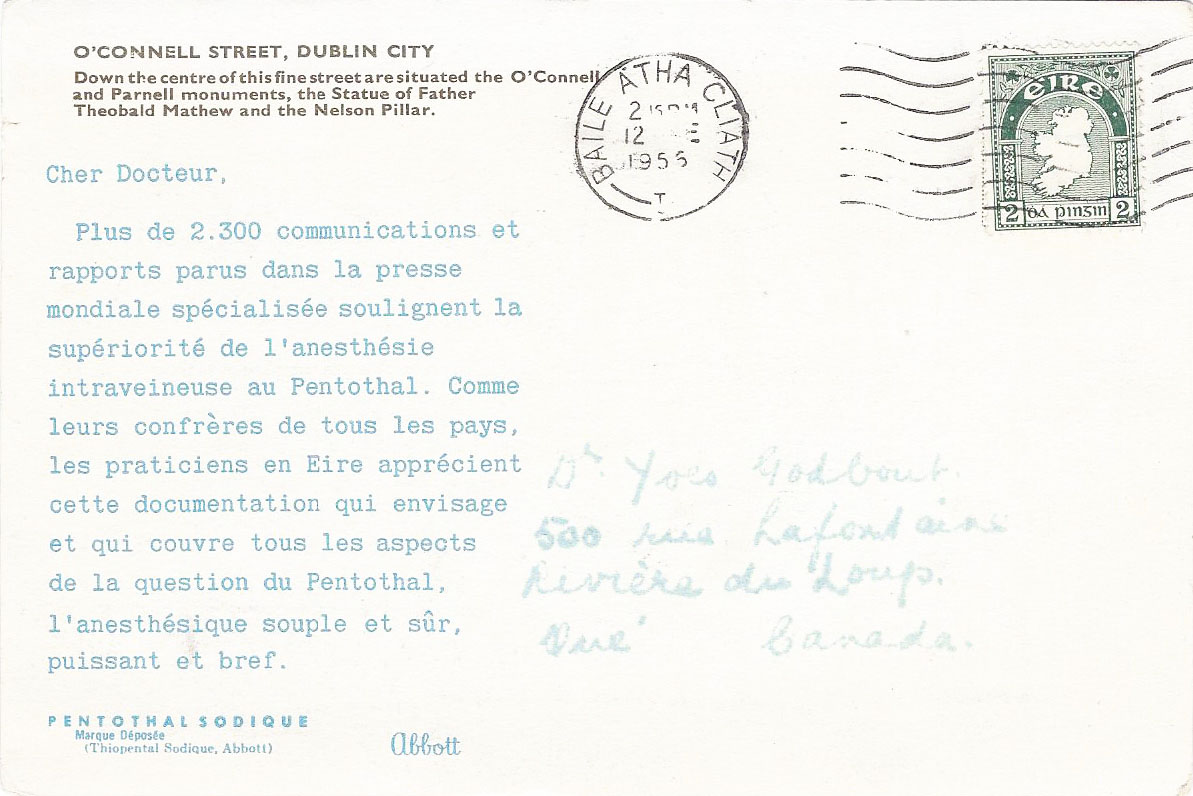 O'CONNELL STREET, DUBLIN CITY
Down the centre of this fine street are situated the O'Connell
and Parnell monuments, the Statue of Father
Theobald Mathew and the Nelson Pillar.
BAILE ÁTHA CLIATH
12
1956
T
EIRE
2 Dá pinġin 2
Cher Docteur,
Plus de 2.300 communications et
rapports parus dans la presse
mondiale spécialisée soulignent la
supériorité de l'anesthésie
intraveineuse au Pentothal. Comme
leurs confrères de tous les pays,
les praticiens en Eire apprécient
cette documentation qui envisage
et qui couvre tous les aspects
de la question du Pentothal,
l'anesthésique souple et sûr,
puissant et bref.
Dr. Yves Godbout.
500 rue Lafontaine
Rivière du Loup.
Canada.
PENTOTHAL SODIQUE
Marque Déposée
(Thiopental Sodique, Abbott)
Abbott